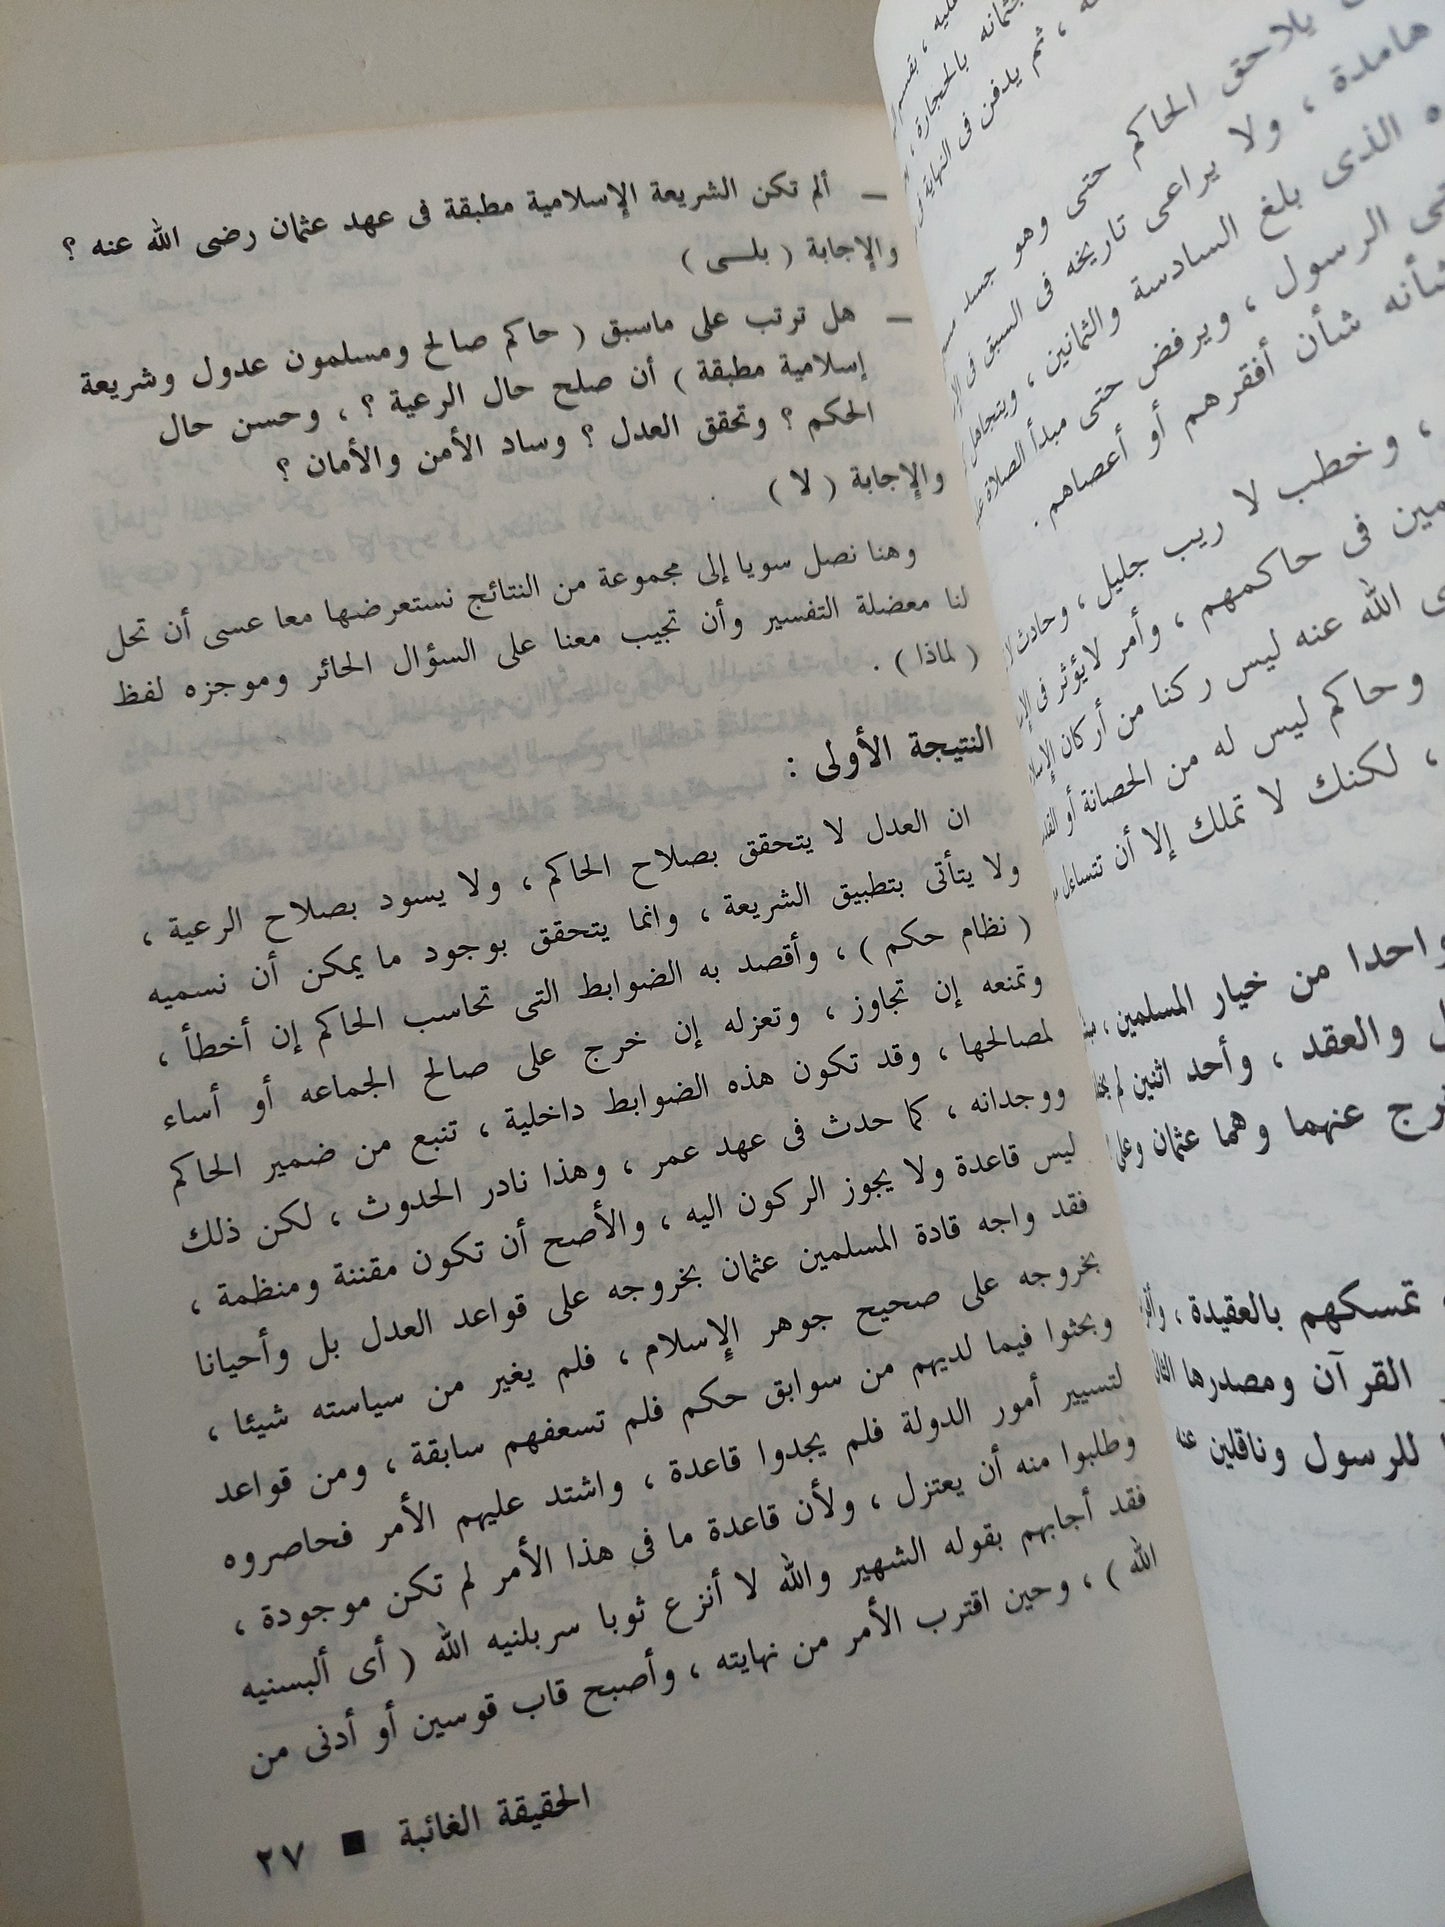 ـ ألم تكن الشريعة الإسلامية مطبقة فى عهد عثمان رضى الله عنه ؟
والإجابة ( بلـــى )
ـ هل ترتب على ماسبق ( حاكم صالح ومسلمون عدول وشريعة
إسلامية مطبقة ) أن صلح حال الرعية ؟ ، وحسن حال
الحكم ؟ وتحقق العدل ؟ وساد الأمن والأمان ؟
والإجابة ( لا )
وهنا نصل سويا إلى مجموعة من النتائج نستعرضها معا عسى أن تحل
لنا معضلة التفسير وأن تجيب معنا على السؤال الحائر وموجزه لفظ
( لماذا ) .
النتيجة الأولى :
ان العدل لا يتحقق بصلاح الحاكم ، ولا يسود بصلاح الرعية ،
ولا يتأتى بتطبيق الشريعة ، وانما يتحقق بوجود ما يمكن أن نسميه
( نظام حكم ) ، وأقصد به الضوابط التى تحاسب الحاكم إن أخطأ ،
وتمنعه إن تجاوز ، وتعزله إن خرج على صالح الجماعه أو أساء
لمصالحها ، وقد تكون هذه الضوابط داخلية ، تنبع من ضمير الحاكم
ووجدانه ، كما حدث فى عهد عمر ، وهذا نادر الحدوث ، لكن ذلك
ليس قاعدة ولا يجوز الركون اليه ، والأصح أن تكون مقننة ومنظمة ،
فقد واجه قادة المسلمين عثمان بخروجه على قواعد العدل بل وأحيانا
بخروجه على صحيح جوهر الإسلام ، فلم يغير من سياسته شيئا ،
وبحثوا فيما لديهم من سوابق حكم فلم تسعفهم سابقة ، ومن قواعد
لتسيير أمور الدولة فلم يجدوا قاعدة ، واشتد عليهم الأمر فحاصروه
وطلبوا منه أن يعتزل ، ولأن قاعدة ما فى هذا الأمر لم تكن موجودة ،
فقد أجابهم بقوله الشهير والله لا أنزع ثوبا سربلنيه الله ( أى ألبسنيه
الله ) ، وحين اقترب الأمر من نهايته ، وأصبح قاب قوسين أو أدنى من
الحقيقة الغائبة ■ ٢٧
بالحجارة ،
، ثم يدفن فى النهاية
يلاحق الحاكم حتى وهو جسد
هامدة ، ولا يراعى تاريخه فى السبق فى
الذى بلغ السادسة والثمانين ، ويتجاهل
الرسول ، ويرفض حتى مبدأ الصلاة
شأن أفقرهم أو أعصاهم .
، وخطب لا ريب جليل ، وحادث
فى حاكمهم ، وأمر لايؤثر فى
الله عنه ليس ركنا من أركان
وحاكم ليس له من الحصانة أو
، لكنك لا تملك إلا أن تتساءل
واحدا من خيار المسلمين ،
والعقد ، وأحد اثنين لم
عنهما وهما عثمان
تمسكهم بالعقيدة ،
القرآن ومصدرها
للرسول وناقلين عنه